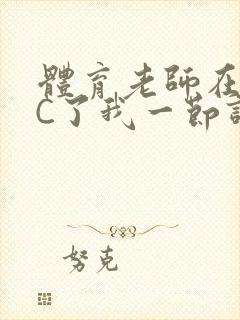 體育老師在
C了我一節
努克